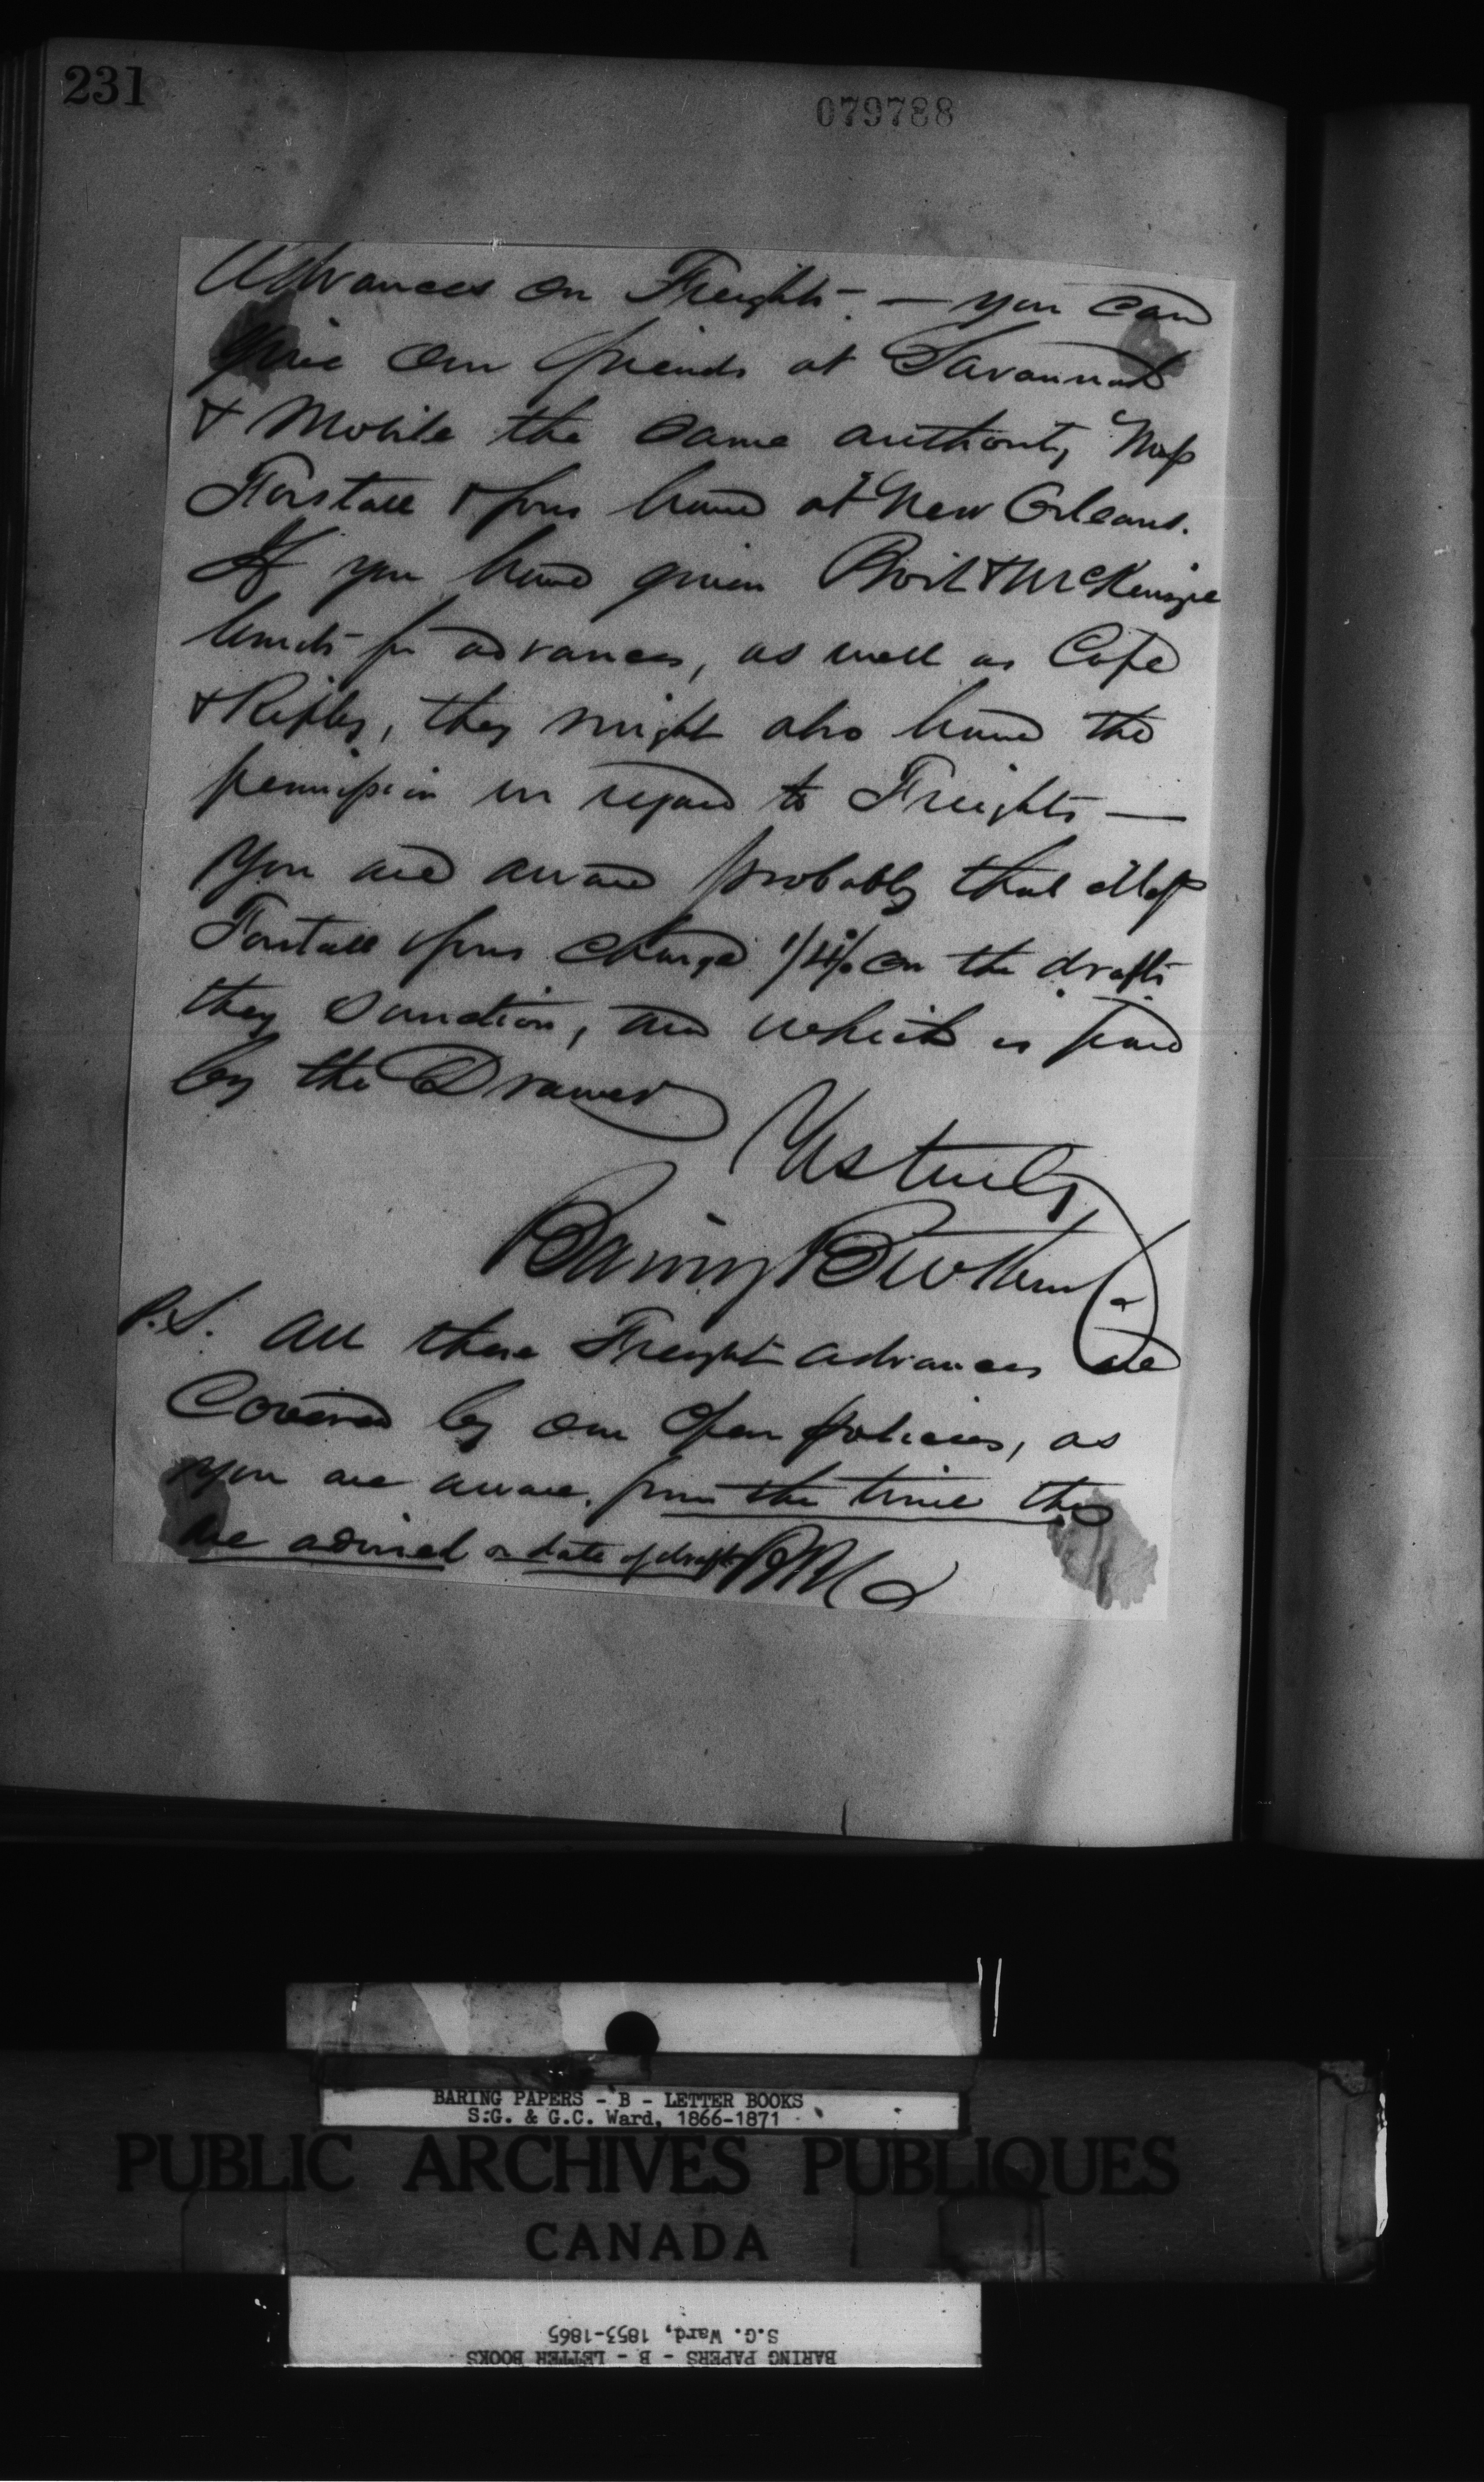 231
079788
Advances on Freights — you can
give our friends at Savannah
& Mobile the same authority Mess
Forstall & Sons have at New Orleans.
If you have given Boit & McKenzie
limits for advances, as well as Cope
& Ripley, they might also have the
permission in regard to Freights —
You are aware probably that Mess
Forstall & Sons charge 1/4% on the drafts
they sanction, and which is paid
by the Drawer
Yrs truly
Baring Brothers & Co
P.S. All these Freight advances are
Covered by our Open policies, as
you are aware, from the time they
are advised or date of draft
BARING PAPERS - B - LETTER BOOKS
S.G. & G.C. Ward, 1866-1871
PUBLIC ARCHIVES PUBLIQUES
CANADA
BARING PAPERS - B - LETTER BOOKS
S.G. Ward, 1853-1865